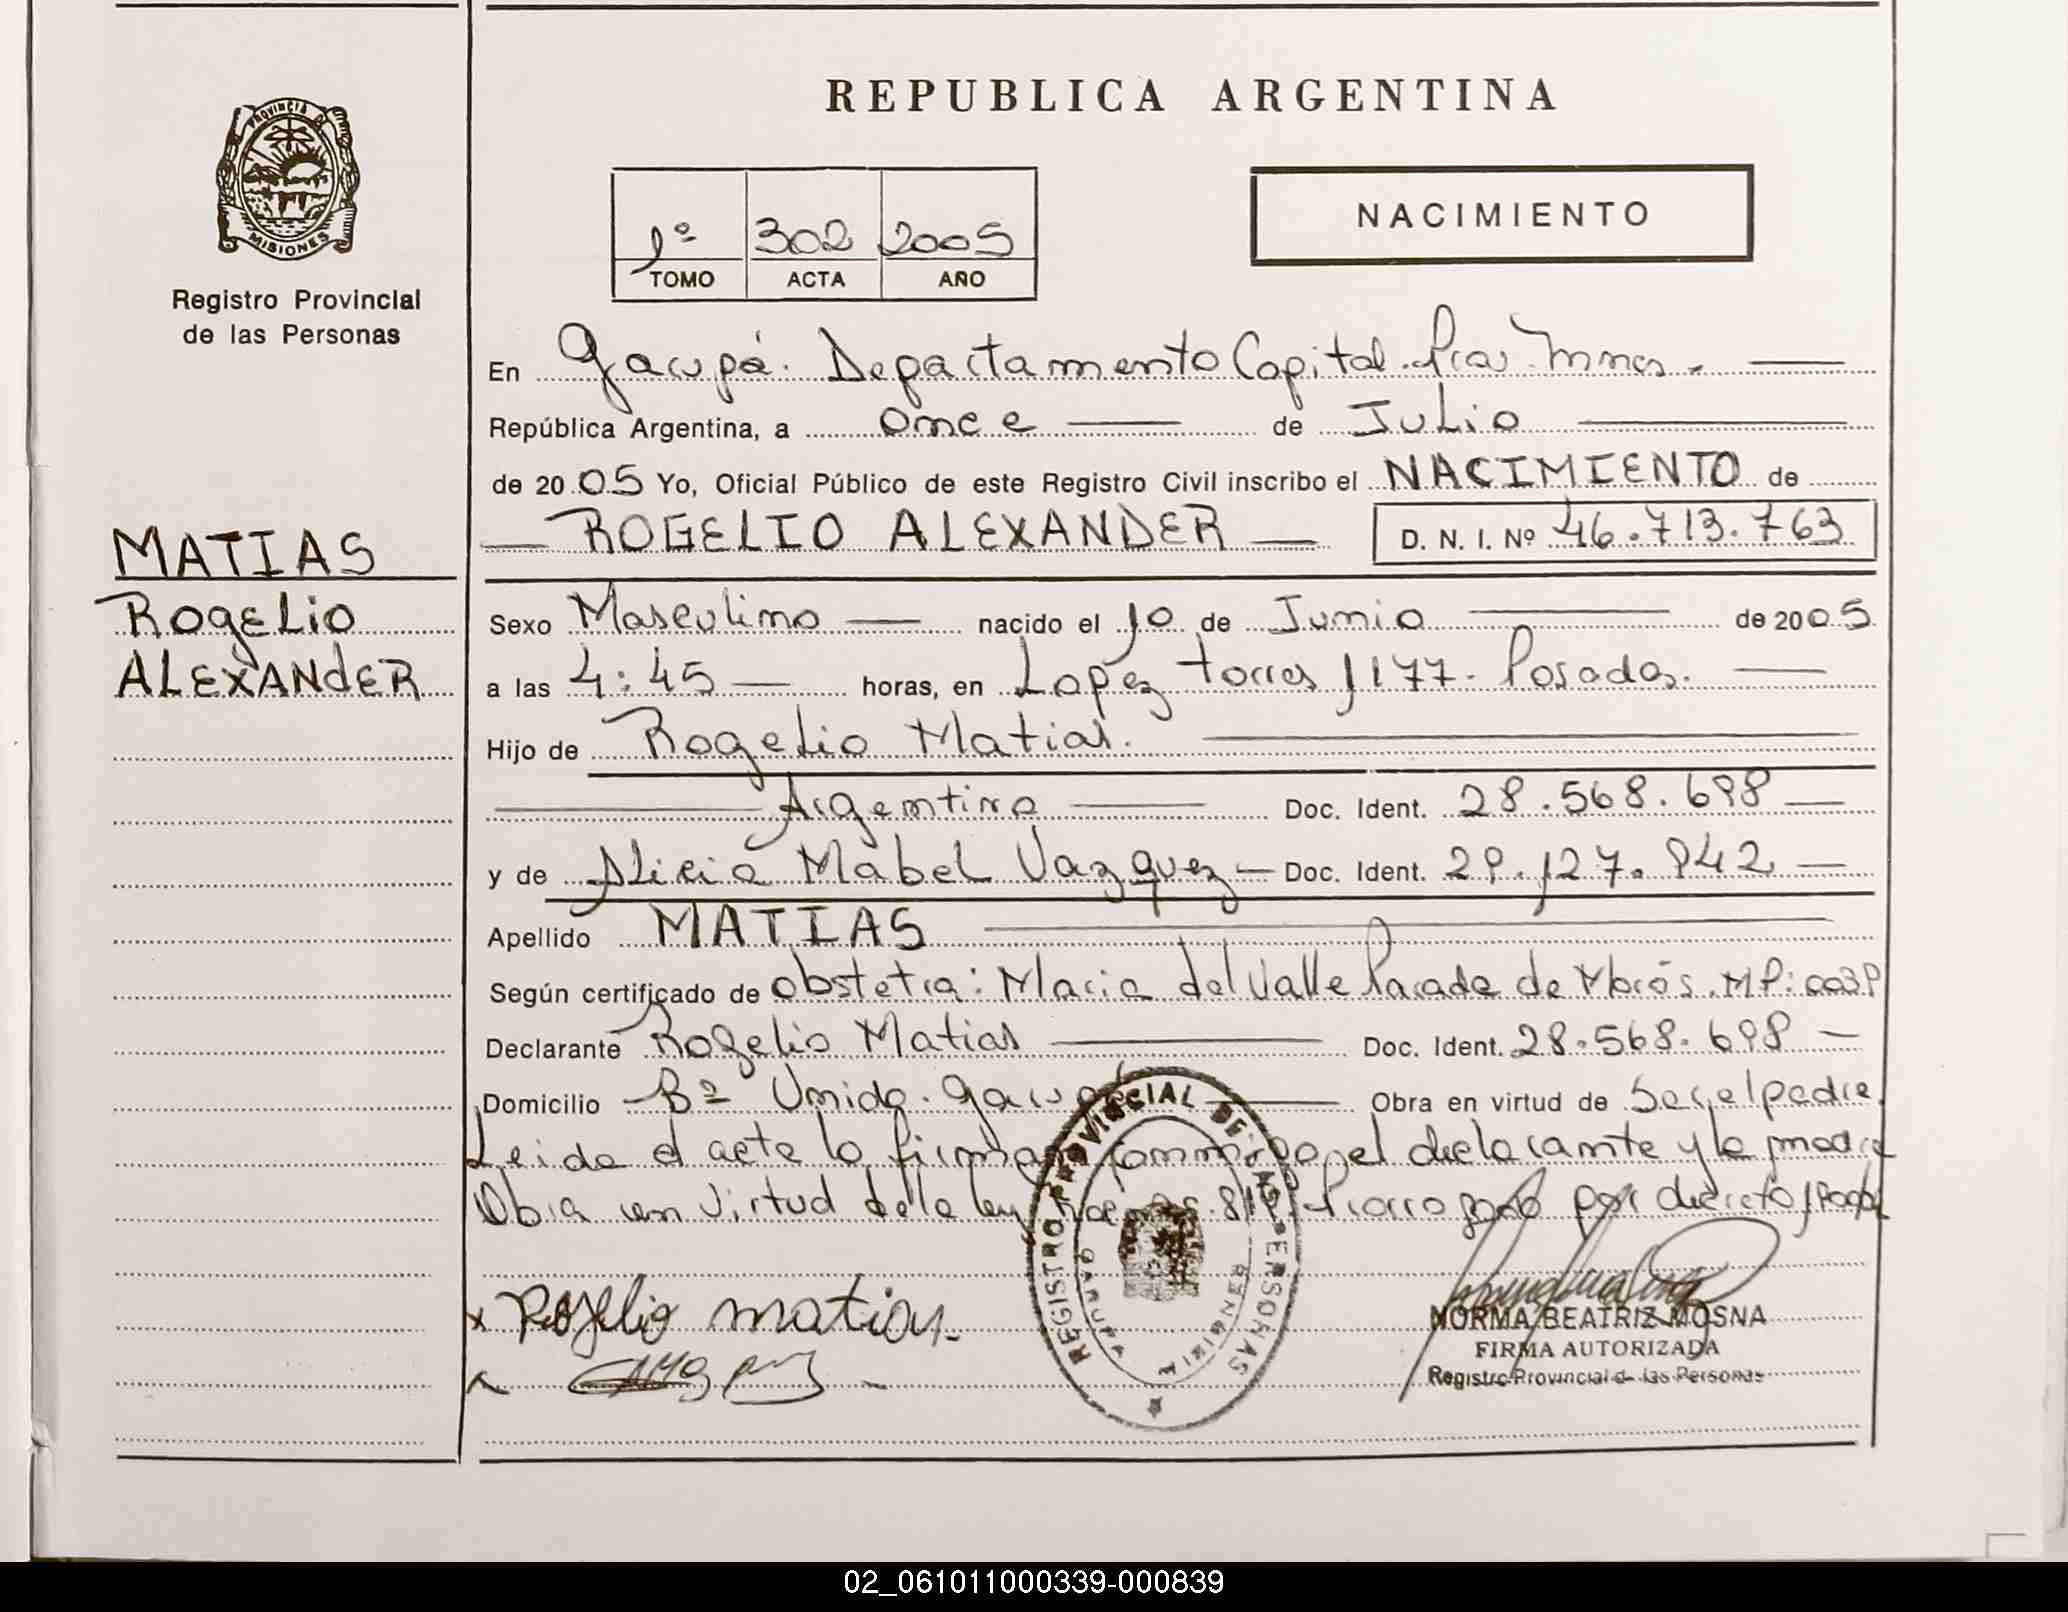 REPUBLICA ARGENTINA
PROVINCIA DE MISIONES
Registro Provincial
de las Personas
1º 302 2005
TOMO ACTA AÑO
NACIMIENTO
En Garupá. Departamento Capital. Pcia. Mnes.
República Argentina, a once de Julio
de 20 05 Yo, Oficial Público de este Registro Civil inscribo el NACIMIENTO de
ROGELIO ALEXANDER D. N. I. Nº 46.713.763
MATIAS
ROGELIO
ALEXANDER
Sexo Masculino nacido el 10 de Junio de 20 05
a las 4:45 horas, en Lopez torres 1177. Posadas.
Hijo de Rogelio Matias.
Argentina Doc. Ident. 28.568.698
y de Alicia Mabel Vazquez Doc. Ident. 29.127.942
Apellido MATIAS
Según certificado de obstetra: Maria del Valle Parada de Mbrós. MP: 0039
Declarante Rogelio Matias Doc. Ident. 28.568.698
Domicilio Bº Unido. Garupá Obra en virtud de Ser el padre.
Leida el acta la firman conmigo el declarante y la madre
Obra en virtud de la ley Prorrogado por decreto
Rogelio matias
REGISTRO PROVINCIAL DE LAS PERSONAS
GARUPA MISIONES
NORMA BEATRIZ MOSNA
FIRMA AUTORIZADA
Registro Provincial de las Personas
02_061011000339-000839